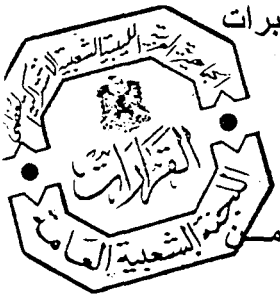 برات
الجماهيرية العربية الليبية الشعبية الاشتراكية العظمى
القرارات
اللجنة الشعبية العامة
مـن